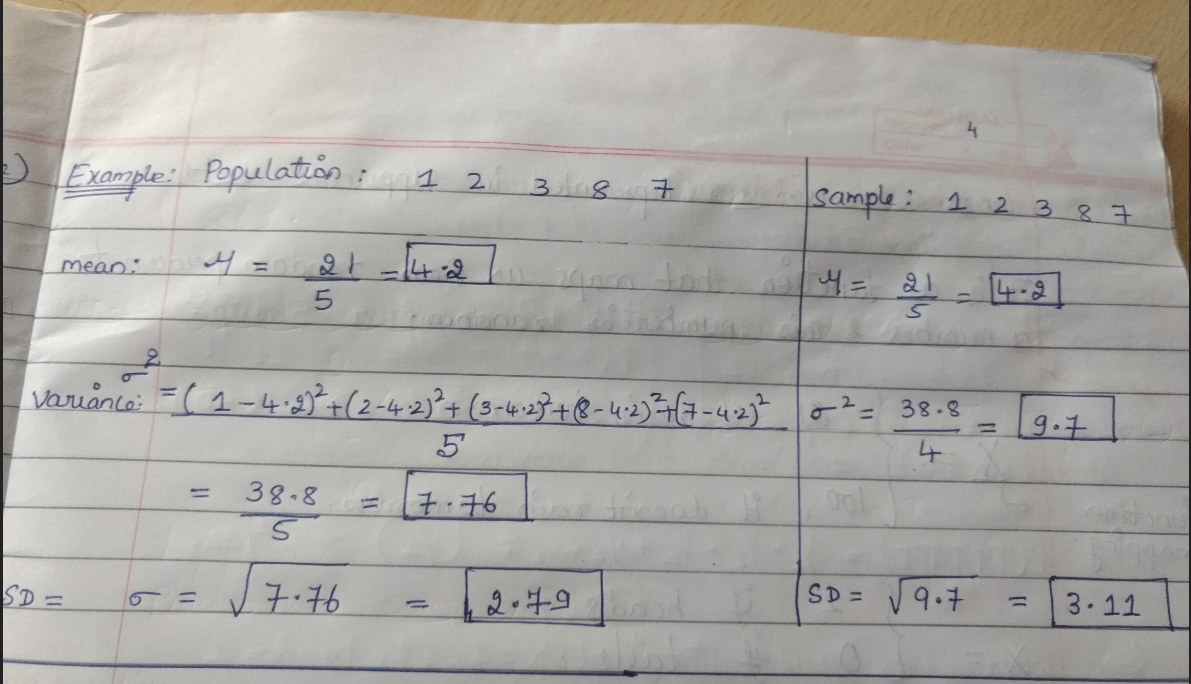 4
Example: Population: 1 2 3 8 7
mean: μ = 21/5 = 4.2
variance: σ² = (1-4.2)²+(2-4.2)²+(3-4.2)²+(8-4.2)²+(7-4.2)²
5
= 38.8/5 = 7.76
SD = σ = √7.76 = 2.79
Sample: 1 2 3 8 7
μ = 21/5 = 4.2
σ² = 38.8/4 = 9.7
SD = √9.7 = 3.11